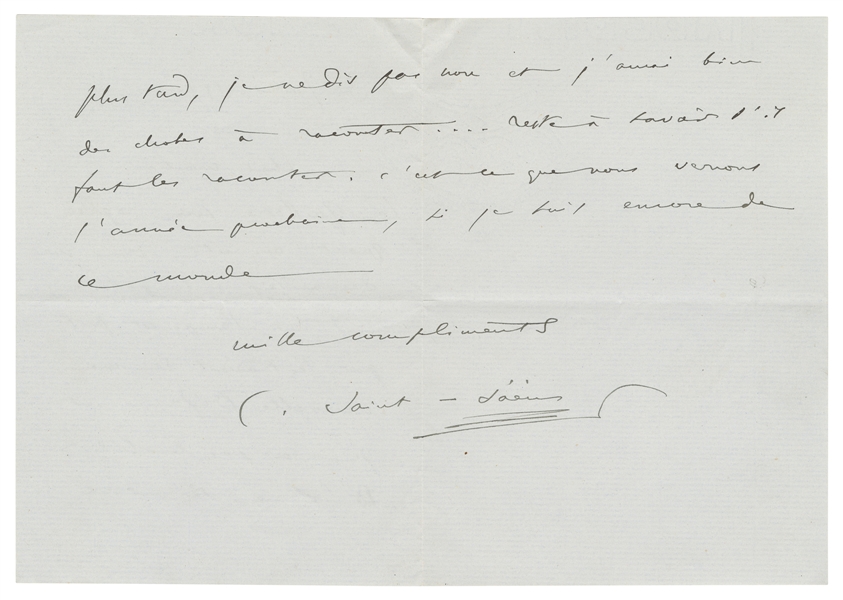 plus tard, je ne dis pas non et j'aurai bien
des choses à raconter .... reste à savoir s'il
faut les raconter. c'est ce que nous verrons
l'année prochaine, si je suis encore de
ce monde
mille compliments
C. Saint-Saëns